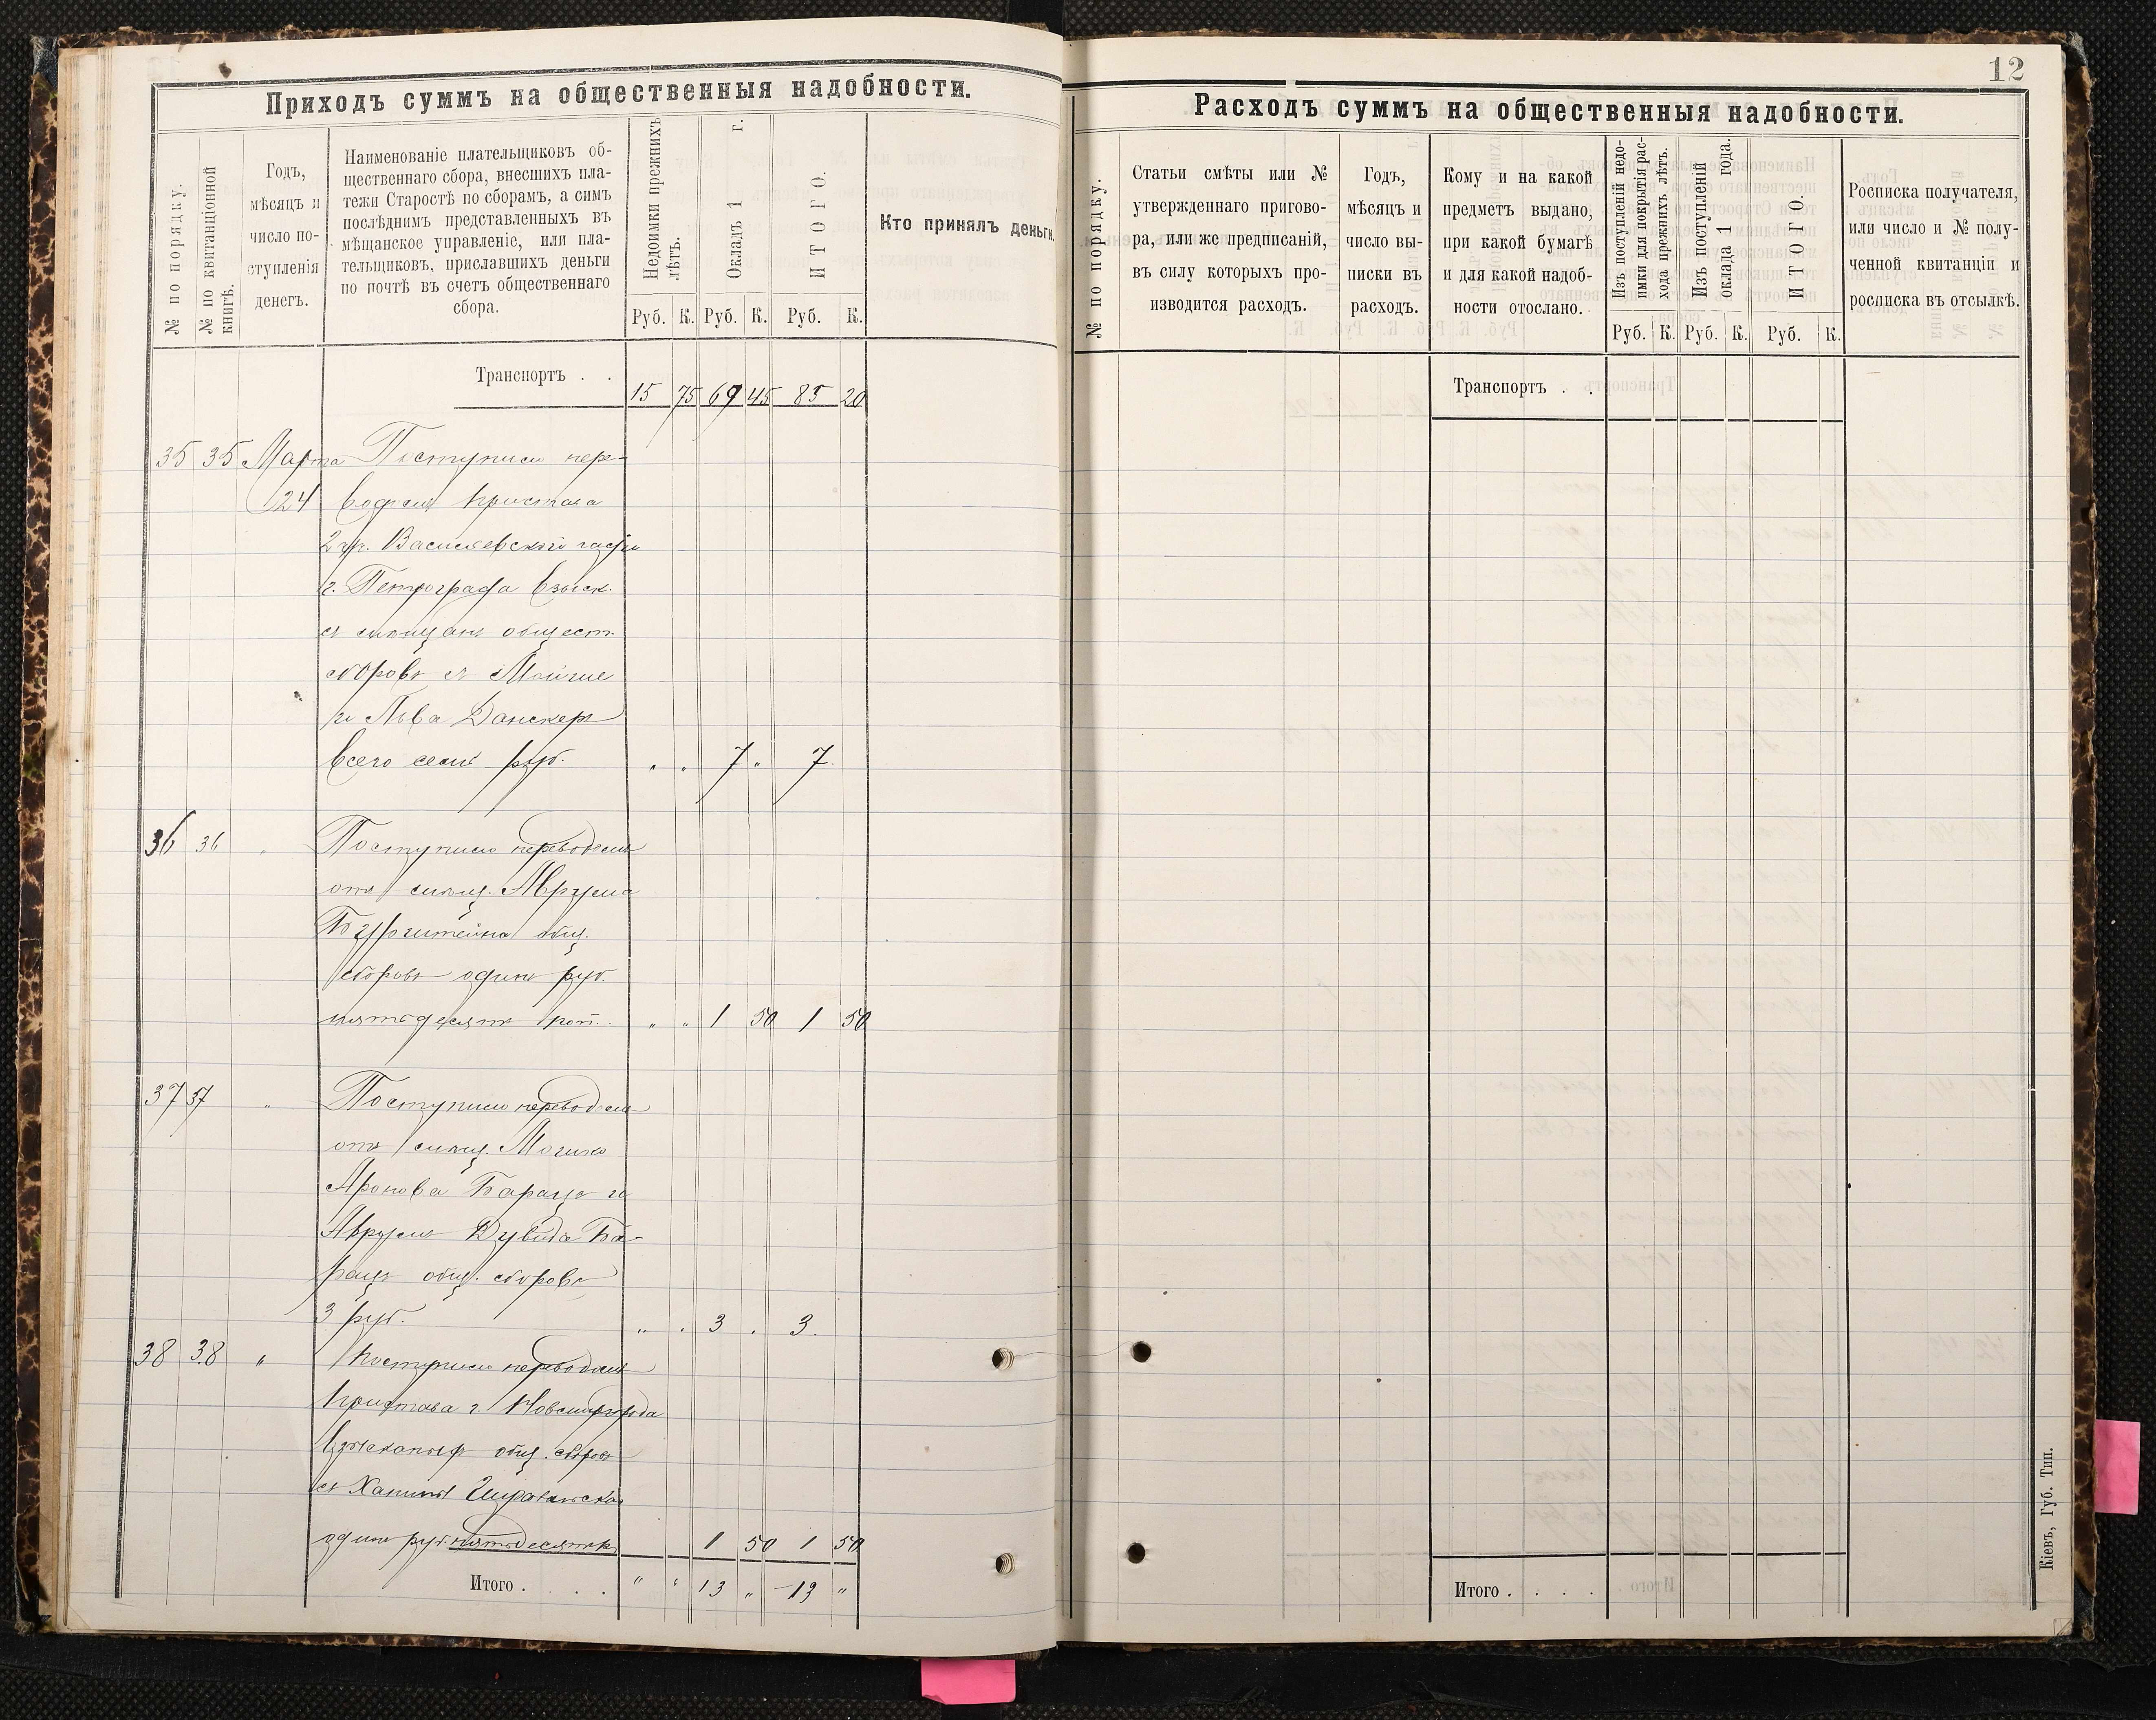 12
Приходъ суммъ на общественныя надобности.
№ по порядку.
№ по квитанціонной
книгѣ.
Годъ,
мѣсяцъ и
число по-
ступленія
денегъ.
Наименованіе плательщиковъ об-
щественнаго сбора, внесшихъ пла-
тежи Старостѣ по сборамъ, а симъ
послѣднимъ представленныхъ въ
мѣщанское управленіе, или пла-
тельщиковъ, приславшихъ деньги
по почтѣ въ счетъ общественнаго
сбора.
Недоимки прежнихъ
лѣтъ.
Окладъ 1 г.
ИТОГО.
Кто принялъ деньги.
Руб. К. Руб. К. Руб. К.
Транспортъ . . 15 75 69 45 85 20
35 35 Марта Поступило пере-
24 водомъ Пристава
2 уч. Васильевской части
г. Петрограда взыск.
съ мѣщанъ общест.
сборовъ съ
и Льва Данскер
всего семь руб. " " 7 " 7
36 36 " Поступило переводомъ
отъ мѣщ. Аврума
Бургштейна общ.
сборовъ одинъ руб.
пятьдесятъ коп. " " 1 50 1 50
37 37 " Поступило переводомъ
отъ мѣщ.
Аронова Бараца и
Аврумъ Дувида Ба-
раца общ. сборовъ
3 руб. " " 3 . 3.
38 38 " Поступило переводомъ
Пристава г. Новомиргорода
взысканныхъ общ. сборовъ
съ
одинъ руб. пятьдесятъ к. 1 50 1 50
Итого . . . . " " 13 " 13 "
Расходъ суммъ на общественныя надобности.
№ по порядку.
Статьи смѣты или №
утвержденнаго пригово-
ра, или же предписаній,
въ силу которыхъ про-
изводится расходъ.
Годъ,
мѣсяцъ и
число вы-
писки въ
расходъ.
Кому и на какой
предметъ выдано,
при какой бумагѣ
и для какой надоб-
ности отослано.
Изъ поступленій недо-
имки для покрытія рас-
хода прежнихъ лѣтъ.
Изъ поступленій
оклада 1 года.
ИТОГО.
Росписка получателя,
или число и № полу-
ченной квитанціи и
росписка въ отсылкѣ.
Руб. К. Руб. К. Руб. К.
Транспортъ . .
Итого . . . .
Кіевъ, Губ. Тип.